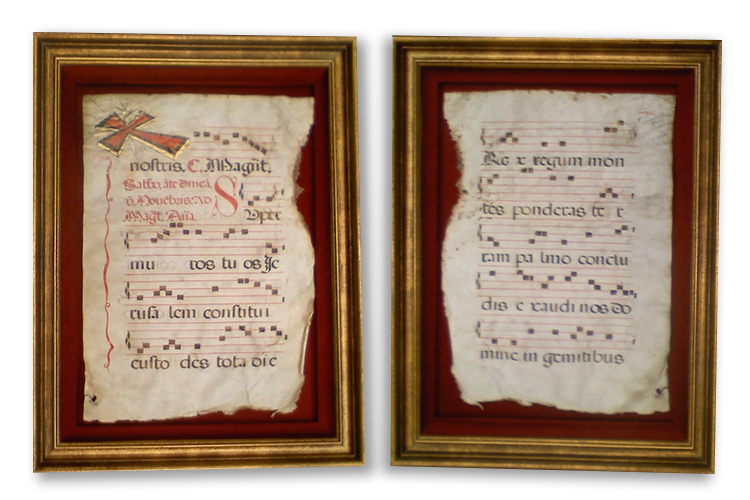 nostris. E. Magñt.
Sabbo. ãte dnicã.
v. Nouẽbris. Ad
Magt. Aña. S
Vper
mu ros tu os Je
rusa lem constitui
custo des tota die
Re x regum mon
tes ponderas te r
ram pa lmo conclu
dis e xaudi nos do
mine in gemitibus